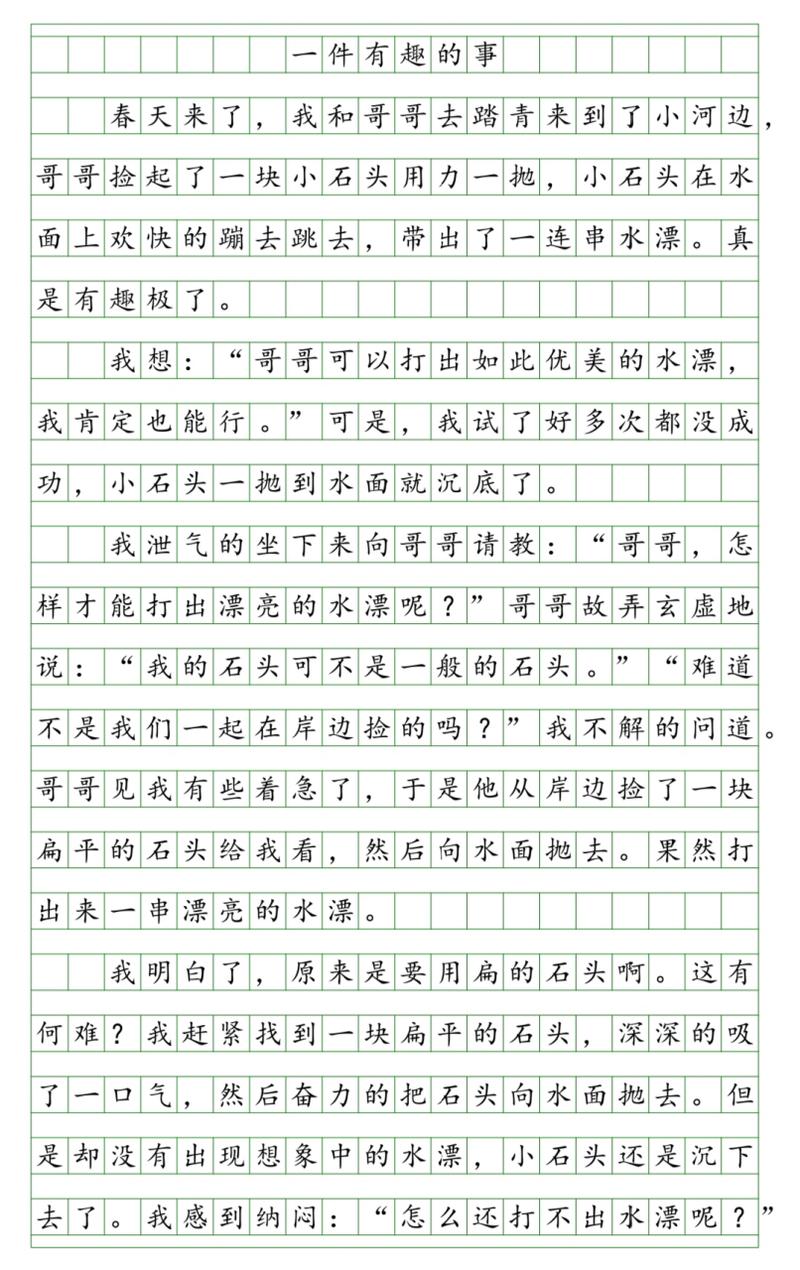 一件有趣的事
春天来了，我和哥哥去踏青来到了小河边，
哥哥捡起了一块小石头用力一抛，小石头在水
面上欢快的蹦去跳去，带出了一连串水漂。真
是有趣极了。
我想：“哥哥可以打出如此优美的水漂，
我肯定也能行。”可是，我试了好多次都没成
功，小石头一抛到水面就沉底了。
我泄气的坐下来向哥哥请教：“哥哥，怎
样才能打出漂亮的水漂呢？”哥哥故弄玄虚地
说：“我的石头可不是一般的石头。”“难道
不是我们一起在岸边捡的吗？”我不解的问道。
哥哥见我有些着急了，于是他从岸边捡了一块
扁平的石头给我看，然后向水面抛去。果然打
出来一串漂亮的水漂。
我明白了，原来是要用扁的石头啊。这有
何难？我赶紧找到一块扁平的石头，深深的吸
了一口气，然后奋力的把石头向水面抛去。但
是却没有出现想象中的水漂，小石头还是沉下
去了。我感到纳闷：“怎么还打不出水漂呢？”